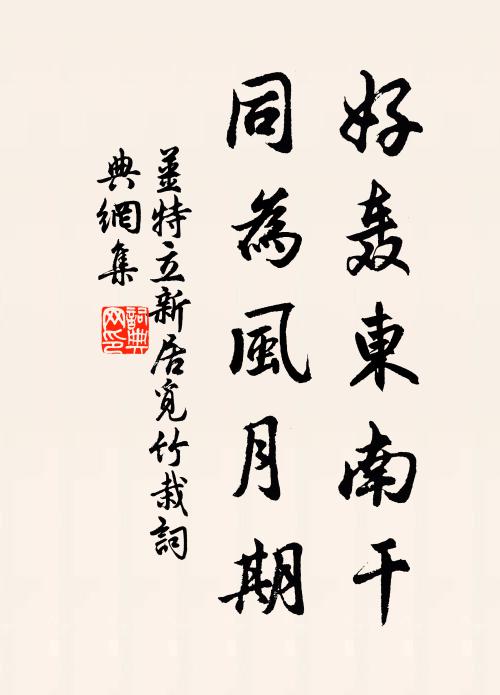 好轰東南干
同為風月期
薑特立新居覓竹栽詞
典網集
詞典
网印